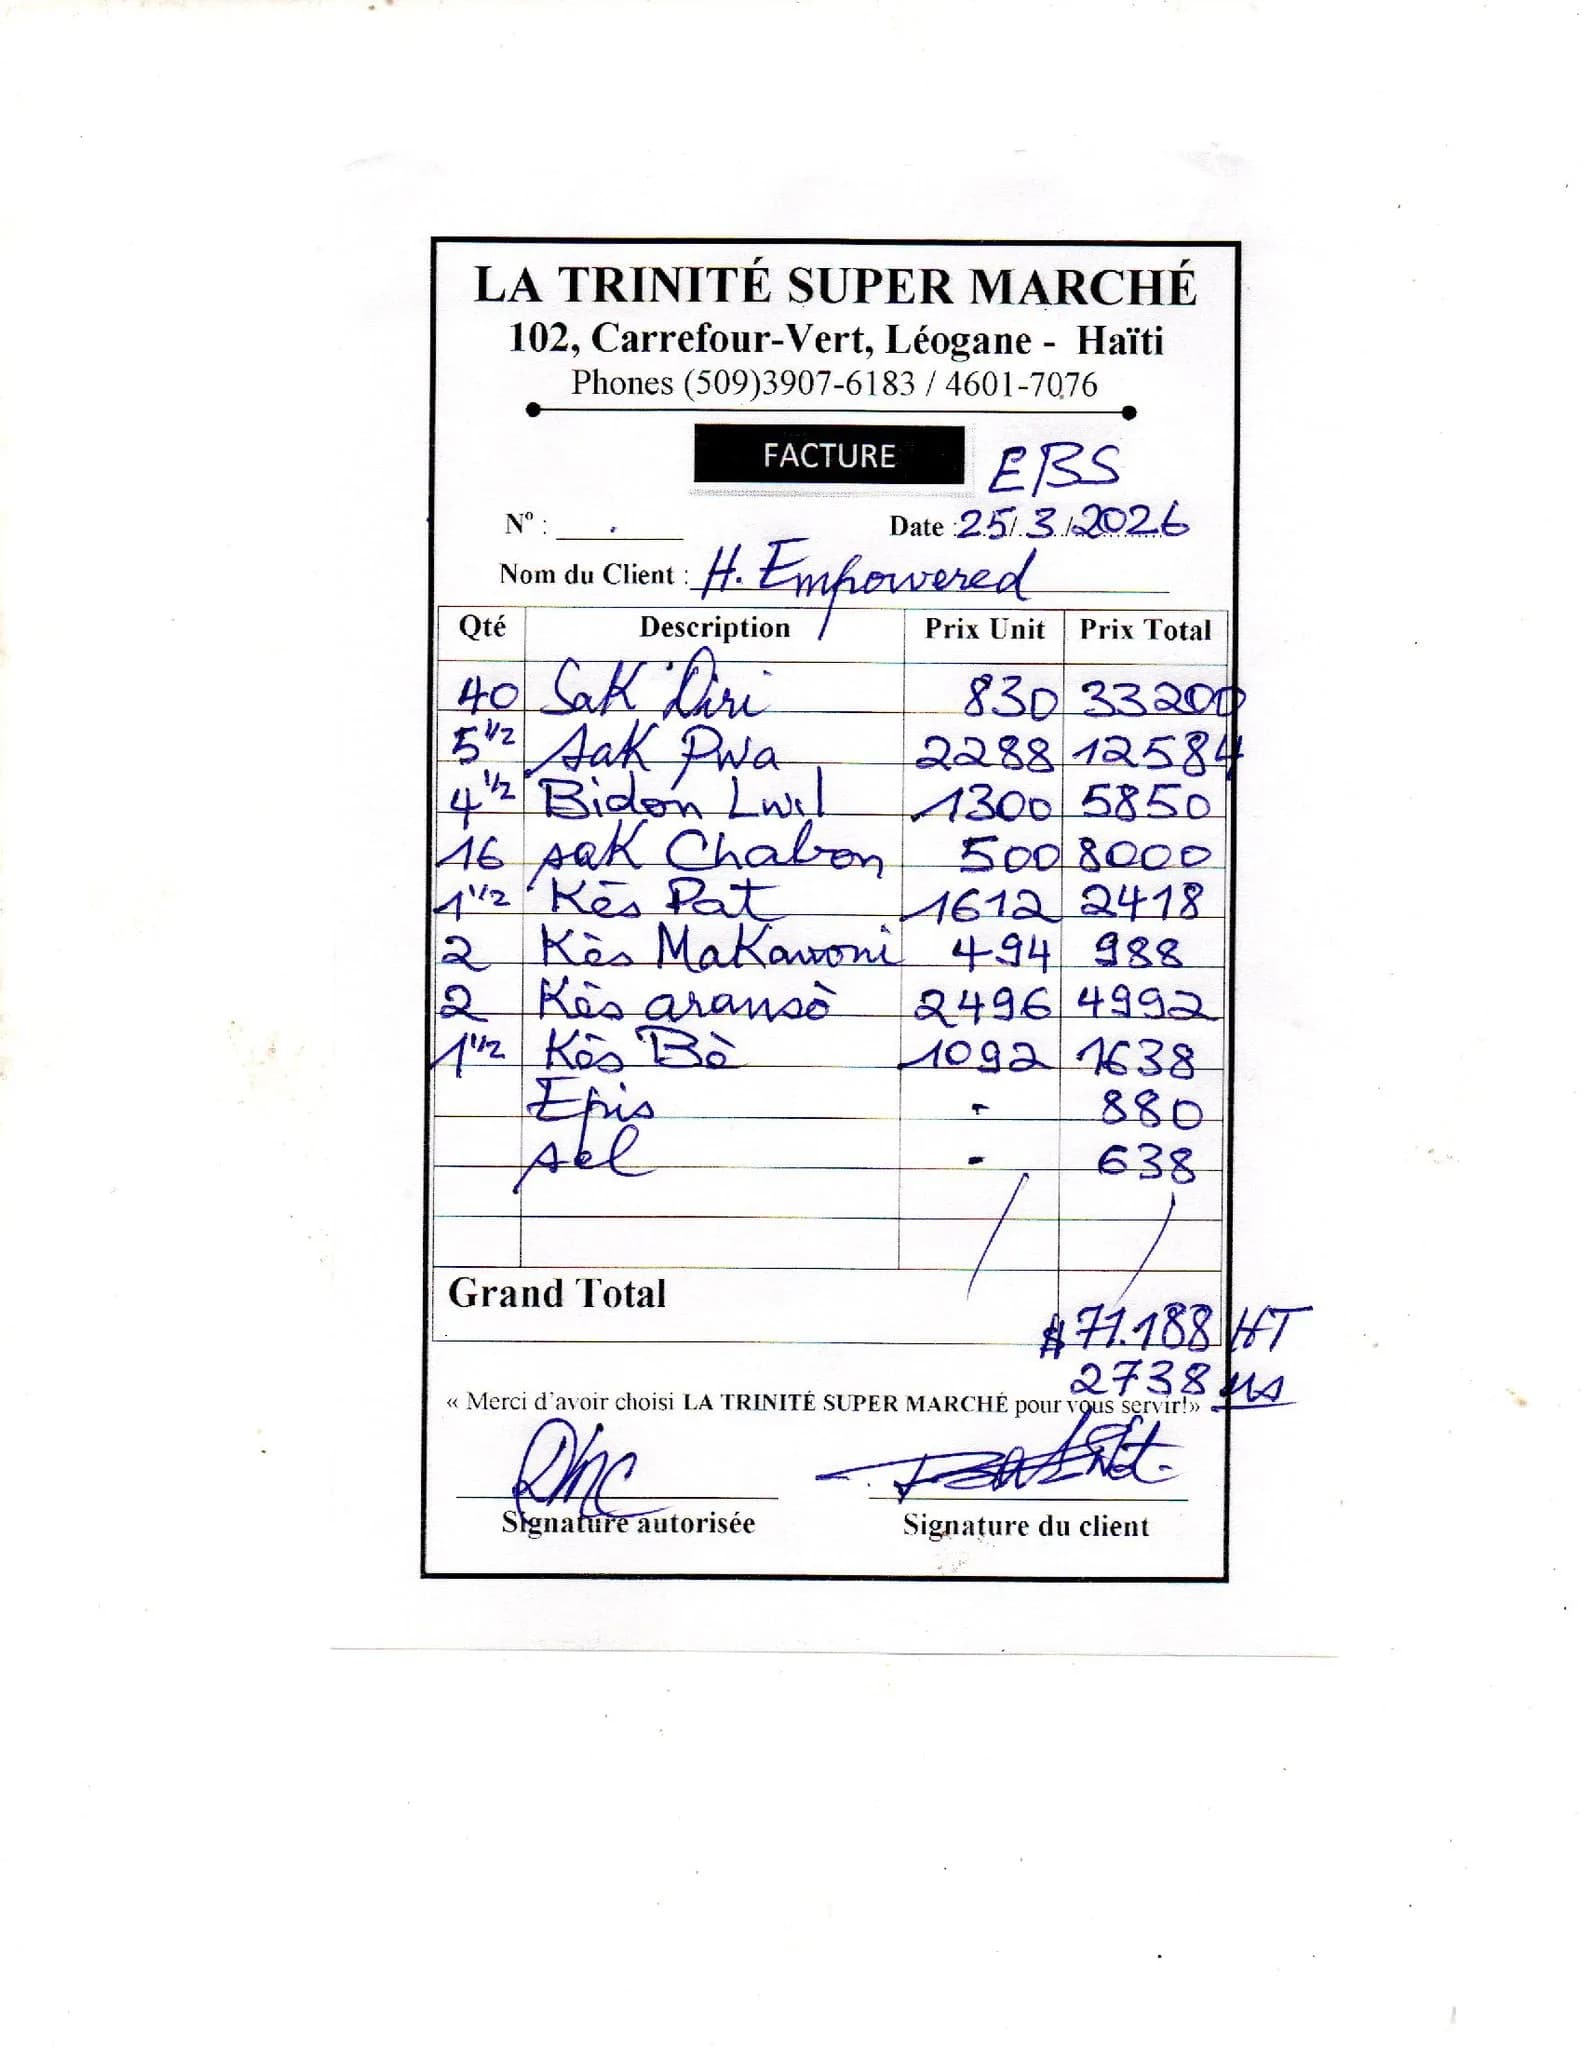 LA TRINITÉ SUPER MARCHÉ
102, Carrefour-Vert, Léogane - Haïti
Phones (509)3907-6183 / 4601-7076
FACTURE EBS
N° : Date : 25/3/2026
Nom du Client : H. Empowered
Qté Description Prix Unit Prix Total
40 Sak Diri 830 33200
5 1/2 sak Pwa 2288 12584
4 1/2 Bidon Lwil 1300 5850
16 sak Chabon 500 8000
1 1/2 Kès Pat 1612 2418
2 Kès Makawoni 494 988
2 Kès aransò 2496 4992
1 1/2 Kès Bè 1092 1638
Epis - 880
sel - 638
Grand Total
$ 71.188 HT
2738 us
« Merci d'avoir choisi LA TRINITÉ SUPER MARCHÉ pour vous servir!»
Signature autorisée Signature du client